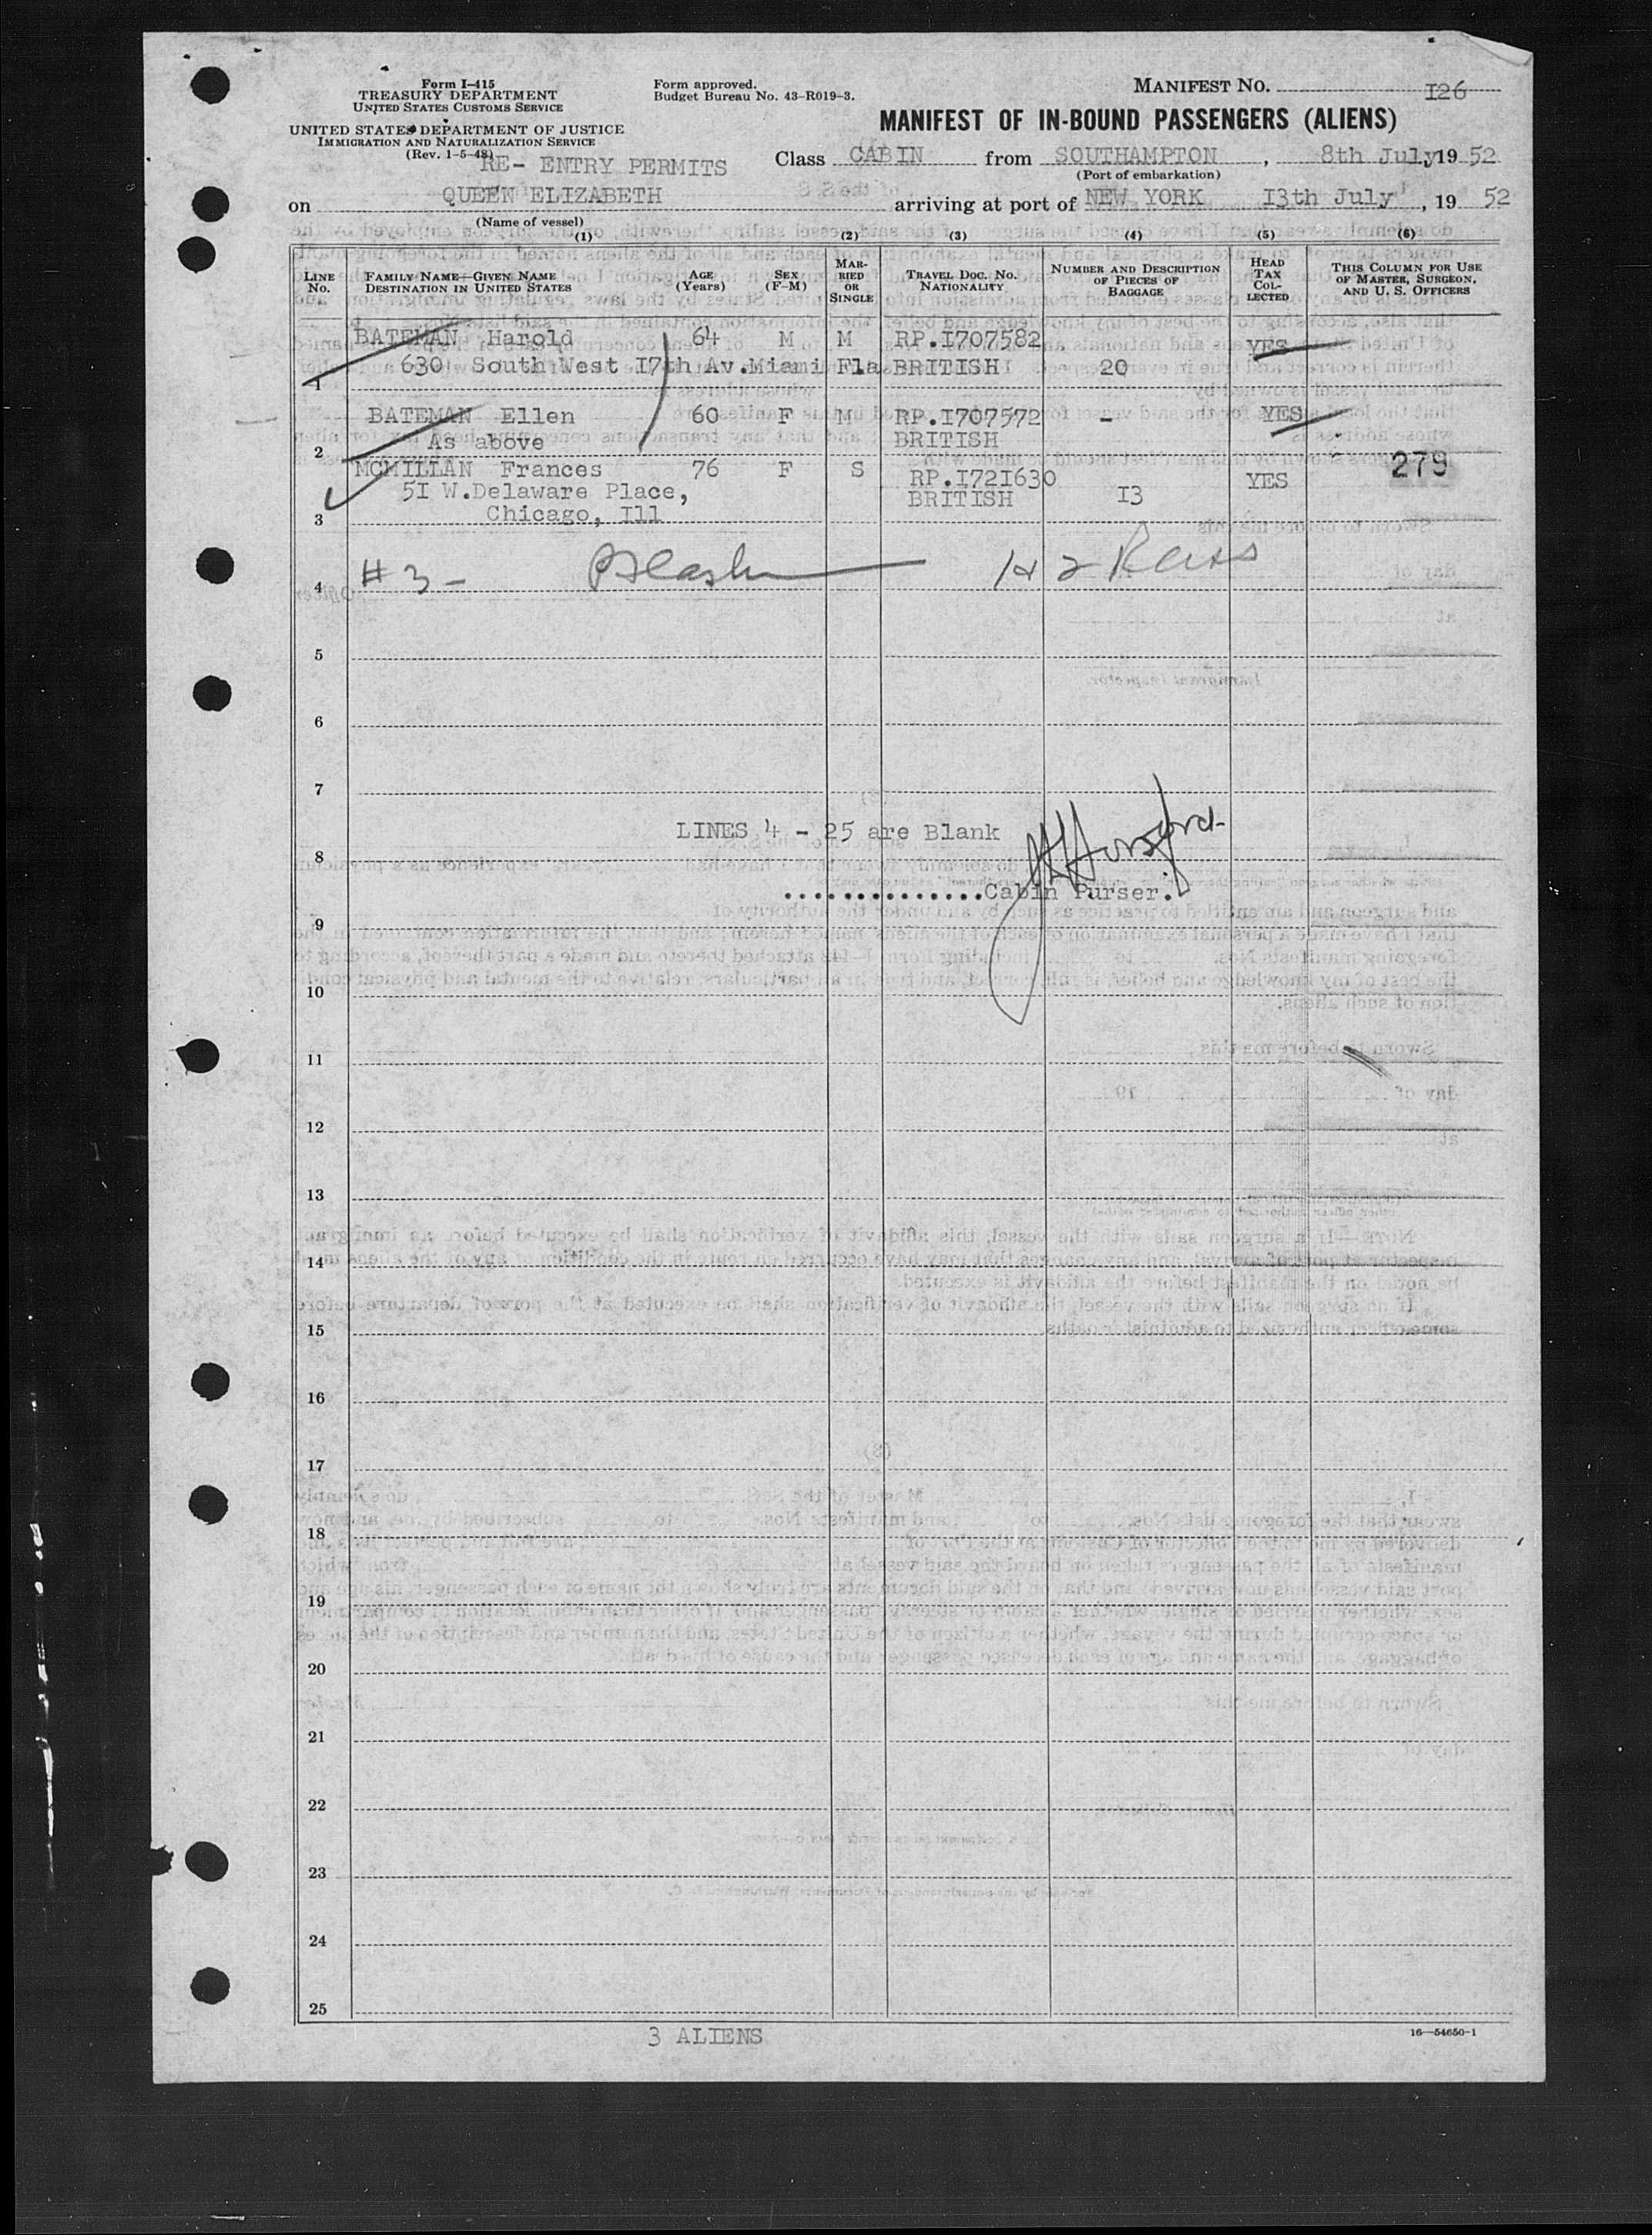 Form I-415
TREASURY DEPARTMENT
UNITED STATES CUSTOMS SERVICE
UNITED STATES DEPARTMENT OF JUSTICE
IMMIGRATION AND NATURALIZATION SERVICE
(Rev. 1-5-48)
Form approved.
Budget Bureau No. 43-R019-3.
MANIFEST NO. I26
MANIFEST OF IN-BOUND PASSENGERS (ALIENS)
RE- ENTRY PERMITS
Class CABIN from SOUTHAMPTON, 8th July 19 52
(Port of embarkation)
on QUEEN ELIZABETH arriving at port of NEW YORK I3th July, 19 52
(Name of vessel)
(1) (2) (3) (4) (5) (6)
LINE No. FAMILY NAME—GIVEN NAME DESTINATION IN UNITED STATES AGE (Years) SEX (F-M) MARRIED OR SINGLE TRAVEL DOC. NO. NATIONALITY NUMBER AND DESCRIPTION OF PIECES OF BAGGAGE HEAD TAX COLLECTED THIS COLUMN FOR USE OF MASTER, SURGEON, AND U. S. OFFICERS
BATEMAN Harold 64 M M RP.I707582 YES
1 630 South West I7th Av.Miami Fla BRITISH 20
BATEMAN Ellen 60 F M RP.I707572 - YES
2 As above BRITISH
MCMILLAN Frances 76 F S RP.I72I630 YES 279
5I W.Delaware Place, BRITISH I3
3 Chicago, Ill
4 # 3 - 1 & 2
5
6
7
LINES 4 - 25 are Blank
8
...............Cabin Purser.
9
10
11
12
13
14
15
16
17
18
19
20
21
22
23
24
25
3 ALIENS
16—54650-1